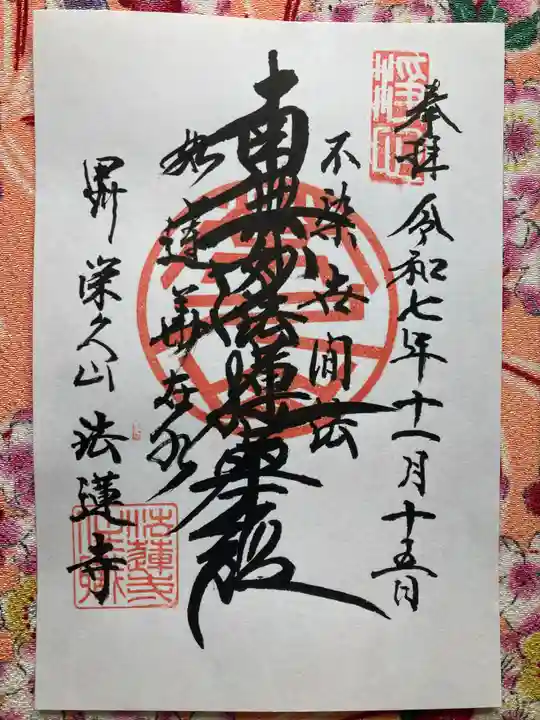 奉拝
令和七年十一月十五日
不染世間法
南無妙法蓮華経
如蓮華在水
栄久山
法蓮寺